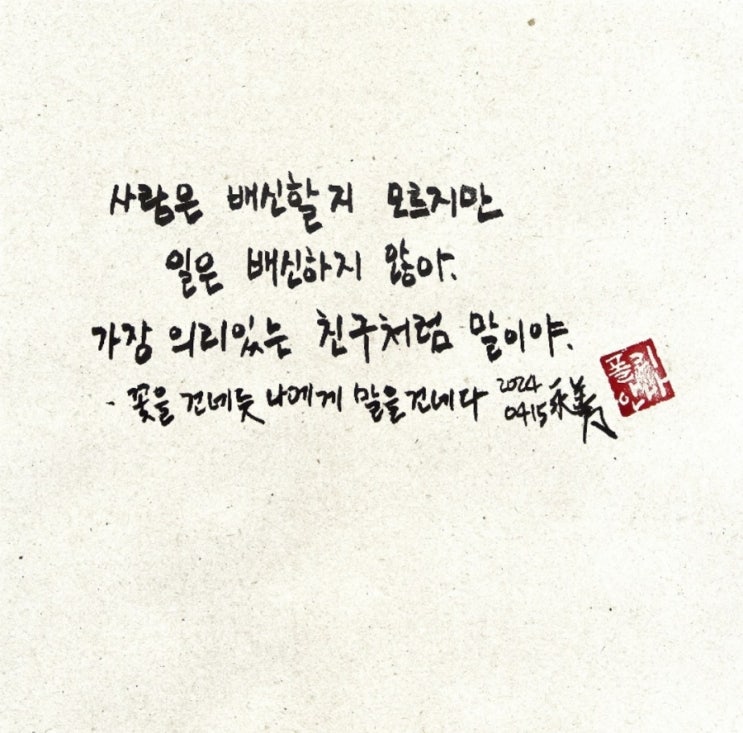 사람은 배신할지 모르지만
일은 배신하지 않아.
가장 의리있는 친구처럼 말이야.
- 꽃을 건네듯 나에게 말을 건네다 2024
0415 永美